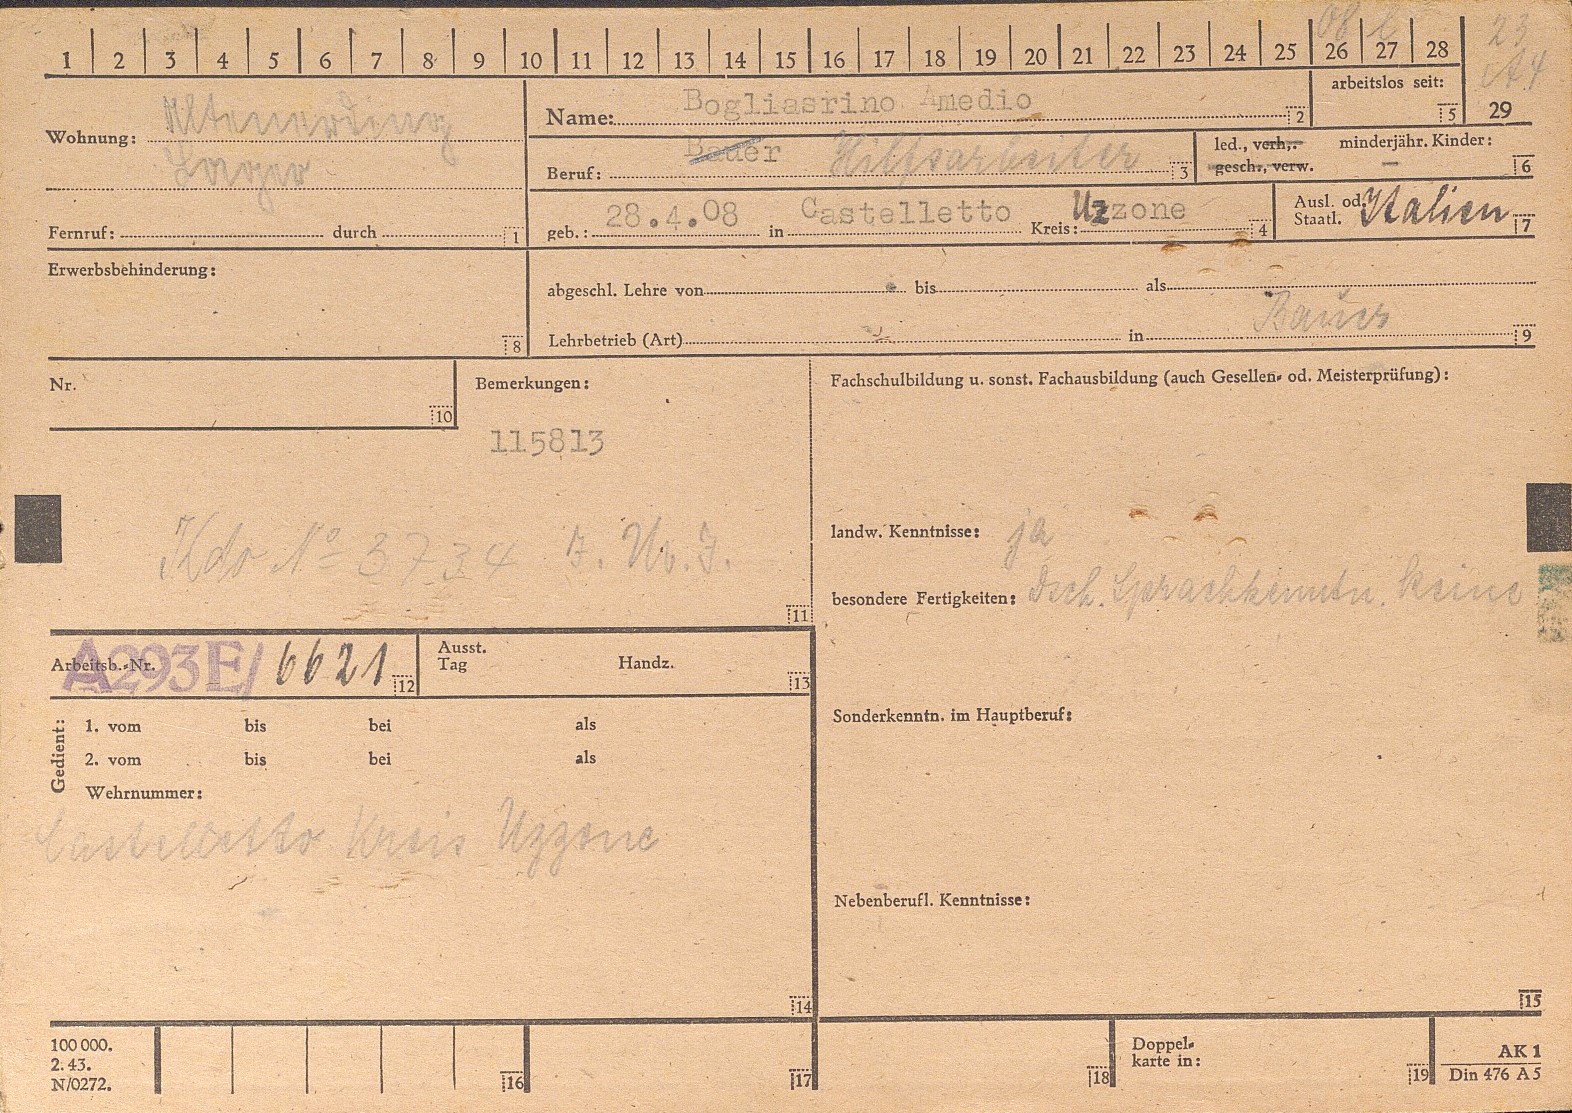 1 2 3 4 5 6 7 8 9 10 11 12 13 14 15 16 17 18 19 20 21 22 23 24 25 26 27 28
08 l 23
A4
29
Wohnung: Altenerding
Lager
Fernruf: durch 1
Name: Bogliasrino Amedio 2
arbeitslos seit: 5
Beruf: Bauer Hilfsarbeiter 3
led., verh., gesch., verw.
minderjähr. Kinder: – 6
geb.: 28.4.08 in Castelletto Kreis: Uzzone 4
Ausl. od. Staatl. Italien 7
Erwerbsbehinderung: 8
abgeschl. Lehre von bis als
Lehrbetrieb (Art) in Bauer 9
Nr. 10
Bemerkungen:
115813
Kdo No 3734
11
Fachschulbildung u. sonst. Fachausbildung (auch Gesellen- od. Meisterprüfung):
landw. Kenntnisse: ja
besondere Fertigkeiten: dsch. Sprachkenntn. keine
Arbeitsb.-Nr. A293E/ 6621 12
Ausst. Tag Handz. 13
Gedient:
1. vom bis bei als
2. vom bis bei als
Wehrnummer:
Castelletto Kreis Uzzone
14
Sonderkenntn. im Hauptberuf:
Nebenberufl. Kenntnisse:
15
100 000.
2. 43.
N/0272.
16 17 18
Doppel-
karte in: 19
AK 1
Din 476 A 5